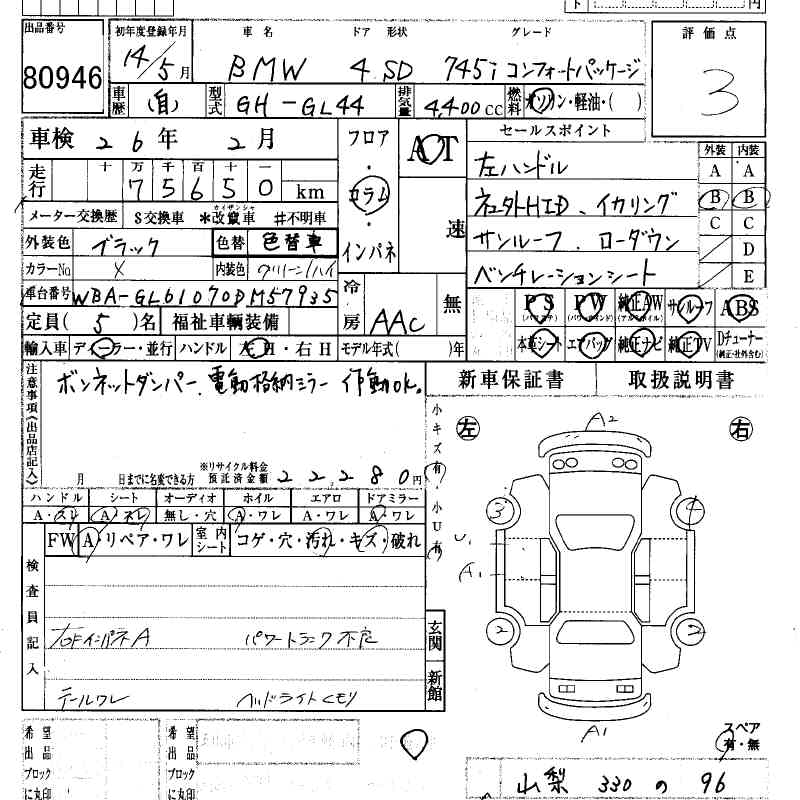 出品番号 初年度登録年月 車名 ドア 形状 グレード 評価点
80946 14/5月 BMW 4 SD 745i コンフォートパッケージ 3
車歴 (自) 型式 GH-GL44 排気量 4,400cc 燃料 ガソリン・軽油・( )
車検 26年 2月 フロア・コラム・インパネ AT 速 セールスポイント 外装 内装
走行 十万千百十一
75650 km
左ハンドル
A A
B B
C C
D
E
ネェクストHID、イカリング
サンルーフ、ローダウン
ベンチレーションシート
メーター交換歴 S交換車 *改竄車 #不明車
カイザンシャ
外装色 ブラック 色替 色替車
カラーNo 内装色 グリーン/ハイ
車台番号 WBA-GL61070DM57935 冷房 AAC 無
定員(5)名 福祉車輌装備
PS PW 純正AW サンルーフ ABS
(パワステ) (パワーウインド) (アルミホイル)
本革シート エアバッグ 純正ナビ 純正TV Dチューナー
(純正・社外含む)
輸入車 ディーラー・並行 ハンドル 左H・右H モデル年式( )年
注意事項(出品店記入) ボンネットダンパー、電動格納ミラー 作動OK。
新車保証書 取扱説明書
月 日までに名変できる方 ※リサイクル料金預託済金額 22,280円
小キズ有・小U有
左 右
A2
3 4
U1
A1
2 2
A1
ハンドル シート オーディオ ホイル エアロ ドアミラー
A・スレ A・スレ 無し・穴 A・ワレ A・ワレ A・ワレ
FW A・リペア・ワレ 室内シート コゲ・穴・汚れ・キズ・破れ
検査員記入
右Fインパネ A パワートランク不良
テールワレ ヘッドライトくもり
玄関 新館
スペア
有・無
希望出品ブロックに丸印
希望出品ブロックに丸印
山梨 330 の 96